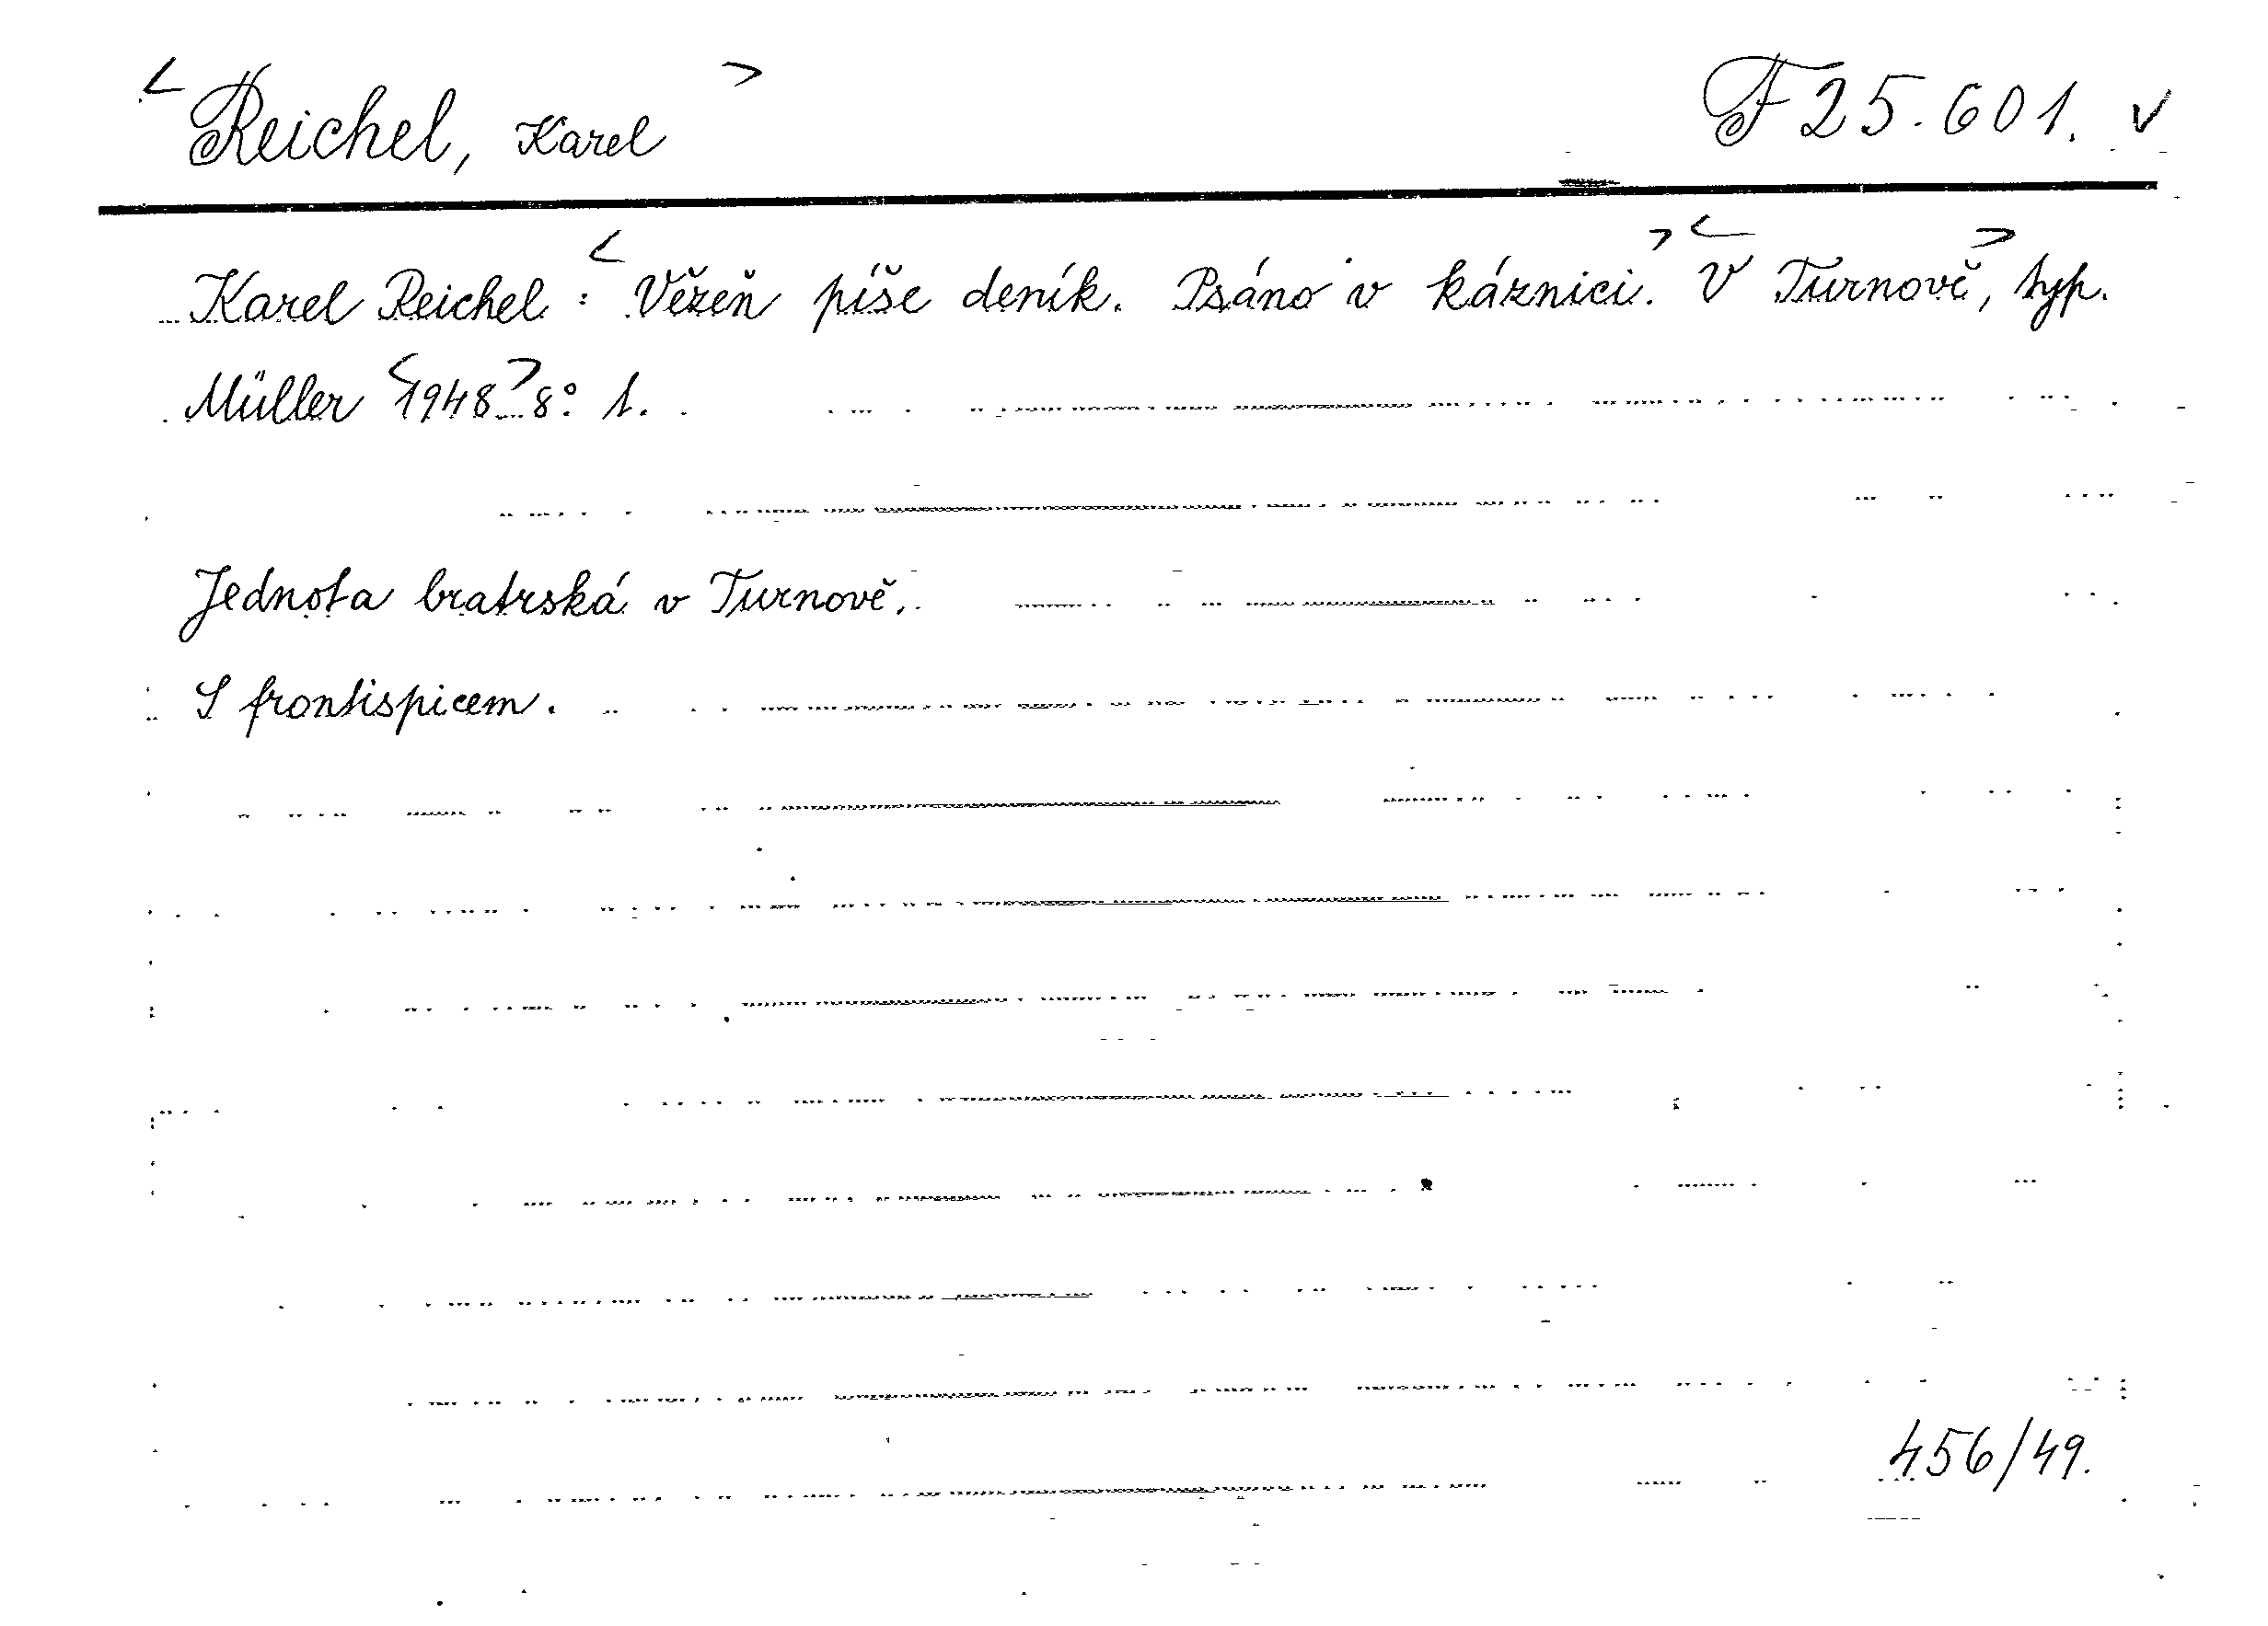 <Reichel, Karel> F 25.601. v
Karel Reichel: <Vězeň píše deník. Psáno v káznici.> <V Turnově>, typ.
Müller <1948> 8° 1.
Jednota bratrská v Turnově.
S frontispicem.
456/49.